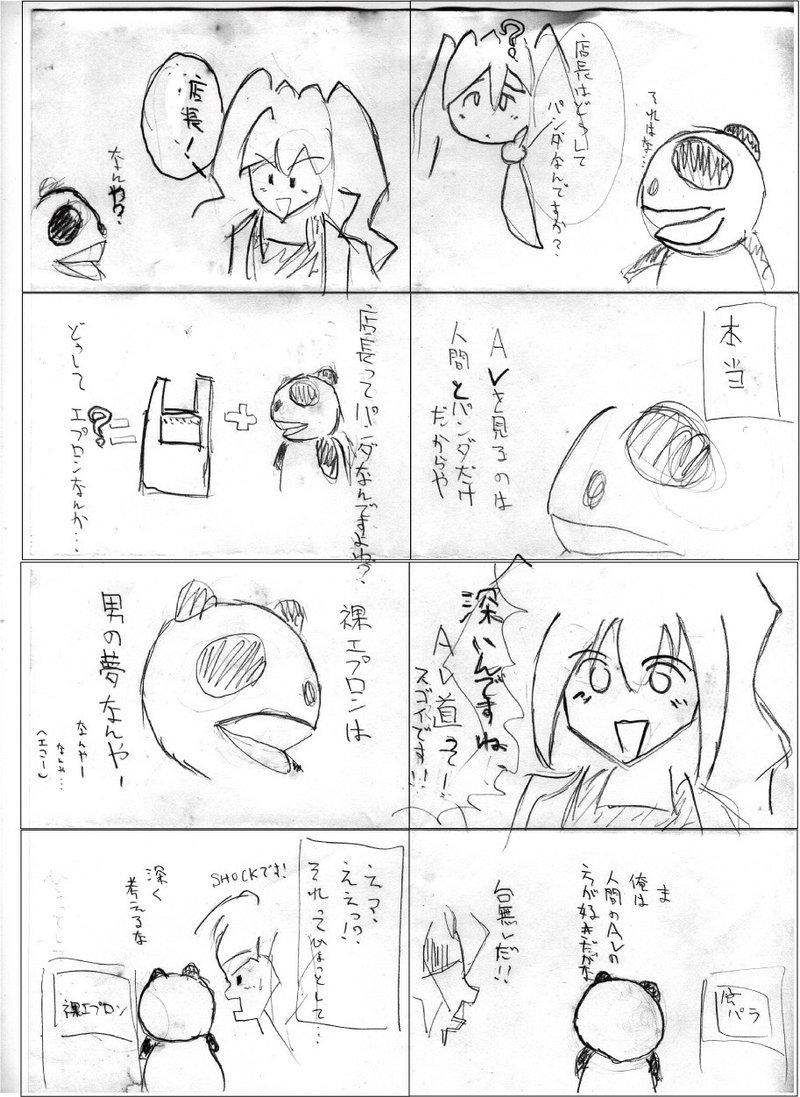 ?
店長はどうして
パンダなんですか?
それはな…
本当
AVを見るのは
人間とパンダだけ
だからや
深いんですね
AV道って!
スゴイです!!
ま
俺は
人間のAVの
方が好きだがな
パラ
台無しだ!!
店長!
なんや?
店長ってパンダなんですよね?
+
=?
どうして エプロンなんか…
裸エプロンは
男の夢なんやー
なんやー
なんや…
(エコー)
えっ、
ええっ!?
それってひょっとして…
SHOCKです!
深く
考えるな
裸エプロン